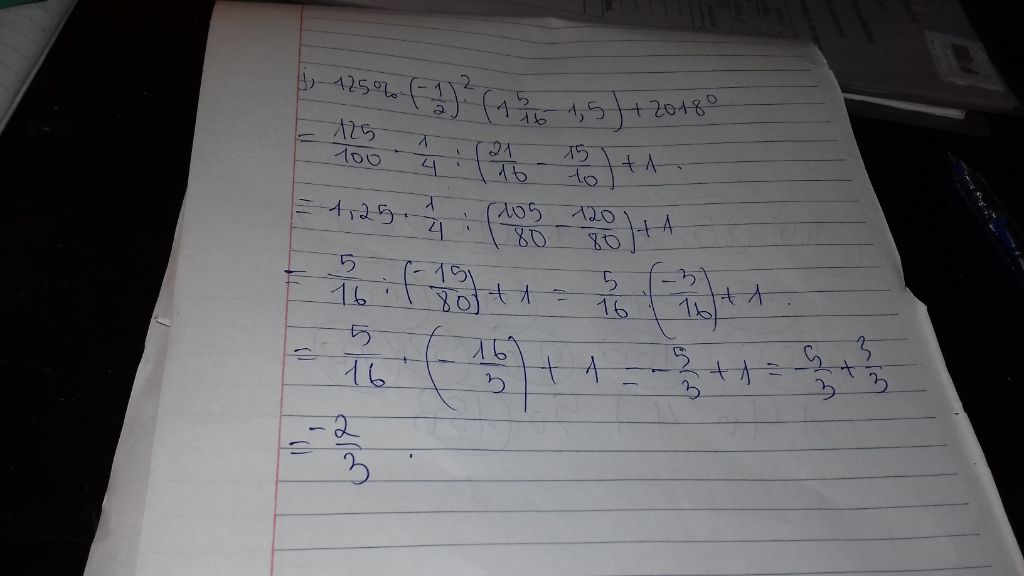 j, 125% . (-1/2)² : (1 5/16 - 1,5) + 2018⁰
= 125/100 . 1/4 : (21/16 - 15/10) + 1 .
= 1,25 . 1/4 : (105/80 - 120/80) + 1
= 5/16 : (-15/80) + 1 = 5/16 : (-3/16) + 1 .
= 5/16 . (-16/3) + 1 = -5/3 + 1 = -5/3 + 3/3
= -2/3 .